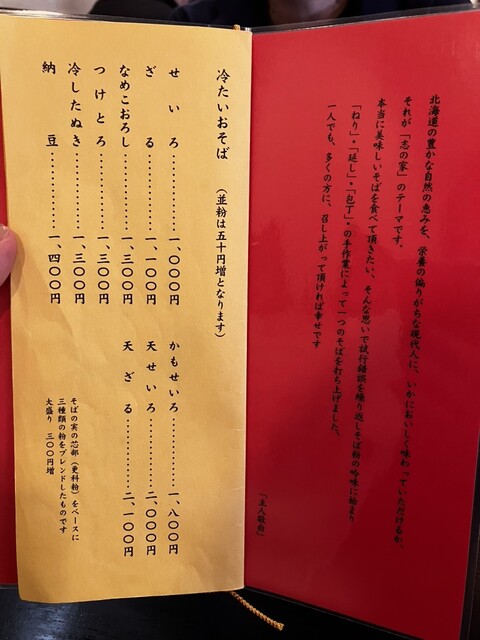 北海道の豊かな自然の恵みを、栄養の偏りがちな現代人に、いかにおいしく味わっていただけるか、
それが「志の家」のテーマです。
本当に美味しいそばを食べて頂きたい、そんな思いで試行錯誤を繰り返しそば粉の吟味に始まり
「ねり」・「延し」・「包丁」の手作業によって一つのそばを打ち上げました。
一人でも、多くの方に、召し上がって頂ければ幸せです
「主人敬白」
冷たいおそば （並粉は五十円増となります）
せいろ………………一、〇〇〇円
ざる………………一、一〇〇円
なめこおろし………………一、三〇〇円
つけとろ………………一、三〇〇円
冷したぬき………………一、三〇〇円
納豆………………一、四〇〇円
かもせいろ………………一、八〇〇円
天せいろ………………二、〇〇〇円
天ざる………………二、一〇〇円
そばの実の芯部（更科粉）をベースに
三種類の粉をブレンドしたものです
大盛り 三〇〇円増